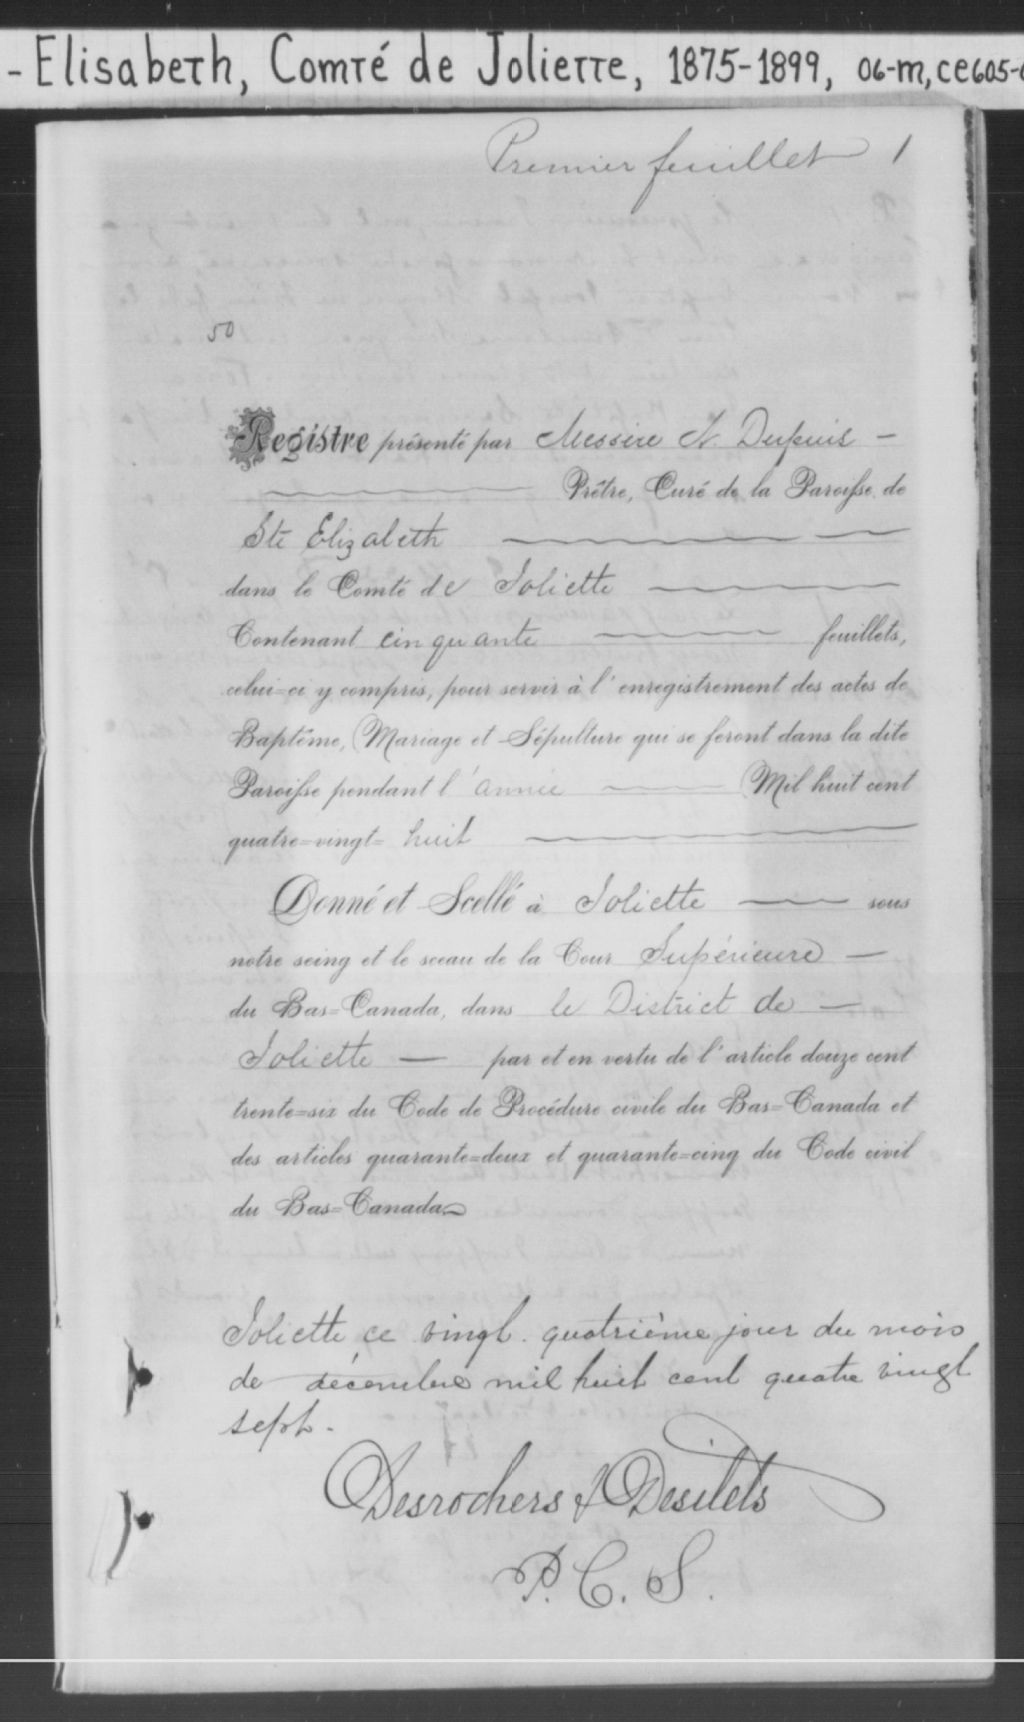 - Elisabeth, Comté de Joliette, 1875-1899, 06-m, ce605-
Premier feuillet 1
50
Registre présenté par Messire N. Dupuis —
Prêtre, Curé de la Paroisse de
Ste Elizabeth
dans le Comté de Joliette
Contenant cinquante feuillets,
celui-ci y compris, pour servir à l'enregistrement des actes de
Baptême, Mariage et Sépulture qui se feront dans la dite
Paroisse pendant l'année Mil huit cent
quatre=vingt= huit
Donné et Scellé à Joliette sous
notre seing et le sceau de la Cour Supérieure —
du Bas=Canada, dans le District de —
Joliette — par et en vertu de l'article douze cent
trente=six du Code de Procédure civile du Bas=Canada et
des articles quarante=deux et quarante=cinq du Code civil
du Bas=Canada
Joliette ce vingt. quatrième jour du mois
de décembre mil huit cent quatre vingt
sept.
Desrochers & Desilets
P. C. S.